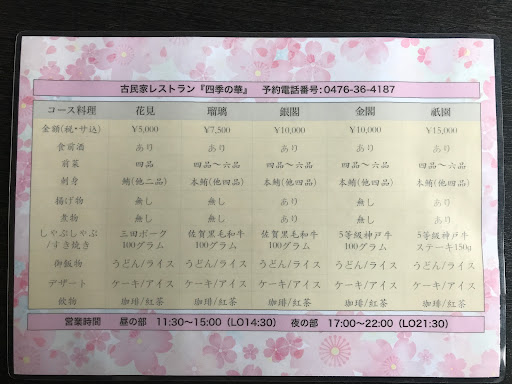 古民家レストラン『四季の華』 予約電話番号:0476-36-4187
コース料理 花見 瑠璃 銀閣 金閣 祇園
金額(税・サ込) ¥5,000 ¥7,500 ¥10,000 ¥10,000 ¥15,000
食前酒 あり あり あり あり あり
前菜 四品 四品〜六品 四品〜六品 四品〜六品 四品〜六品
刺身 鮪(他二品) 本鮪(他四品) 本鮪(他四品) 本鮪(他四品) 本鮪(他四品)
揚げ物 無し 無し あり 無し あり
煮物 無し 無し あり 無し あり
しゃぶしゃぶ 三田ポーク 佐賀黒毛和牛 佐賀黒毛和牛 5等級神戸牛 5等級神戸牛
/すき焼き 100グラム 100グラム 100グラム 100グラム ステーキ150g
御飯物 うどん/ライス うどん/ライス うどん/ライス うどん/ライス うどん/ライス
デザート ケーキ/アイス ケーキ/アイス ケーキ/アイス ケーキ/アイス ケーキ/アイス
飲物 珈琲/紅茶 珈琲/紅茶 珈琲/紅茶 珈琲/紅茶 珈琲/紅茶
営業時間 昼の部 11:30〜15:00(LO14:30) 夜の部 17:00〜22:00(LO21:30)